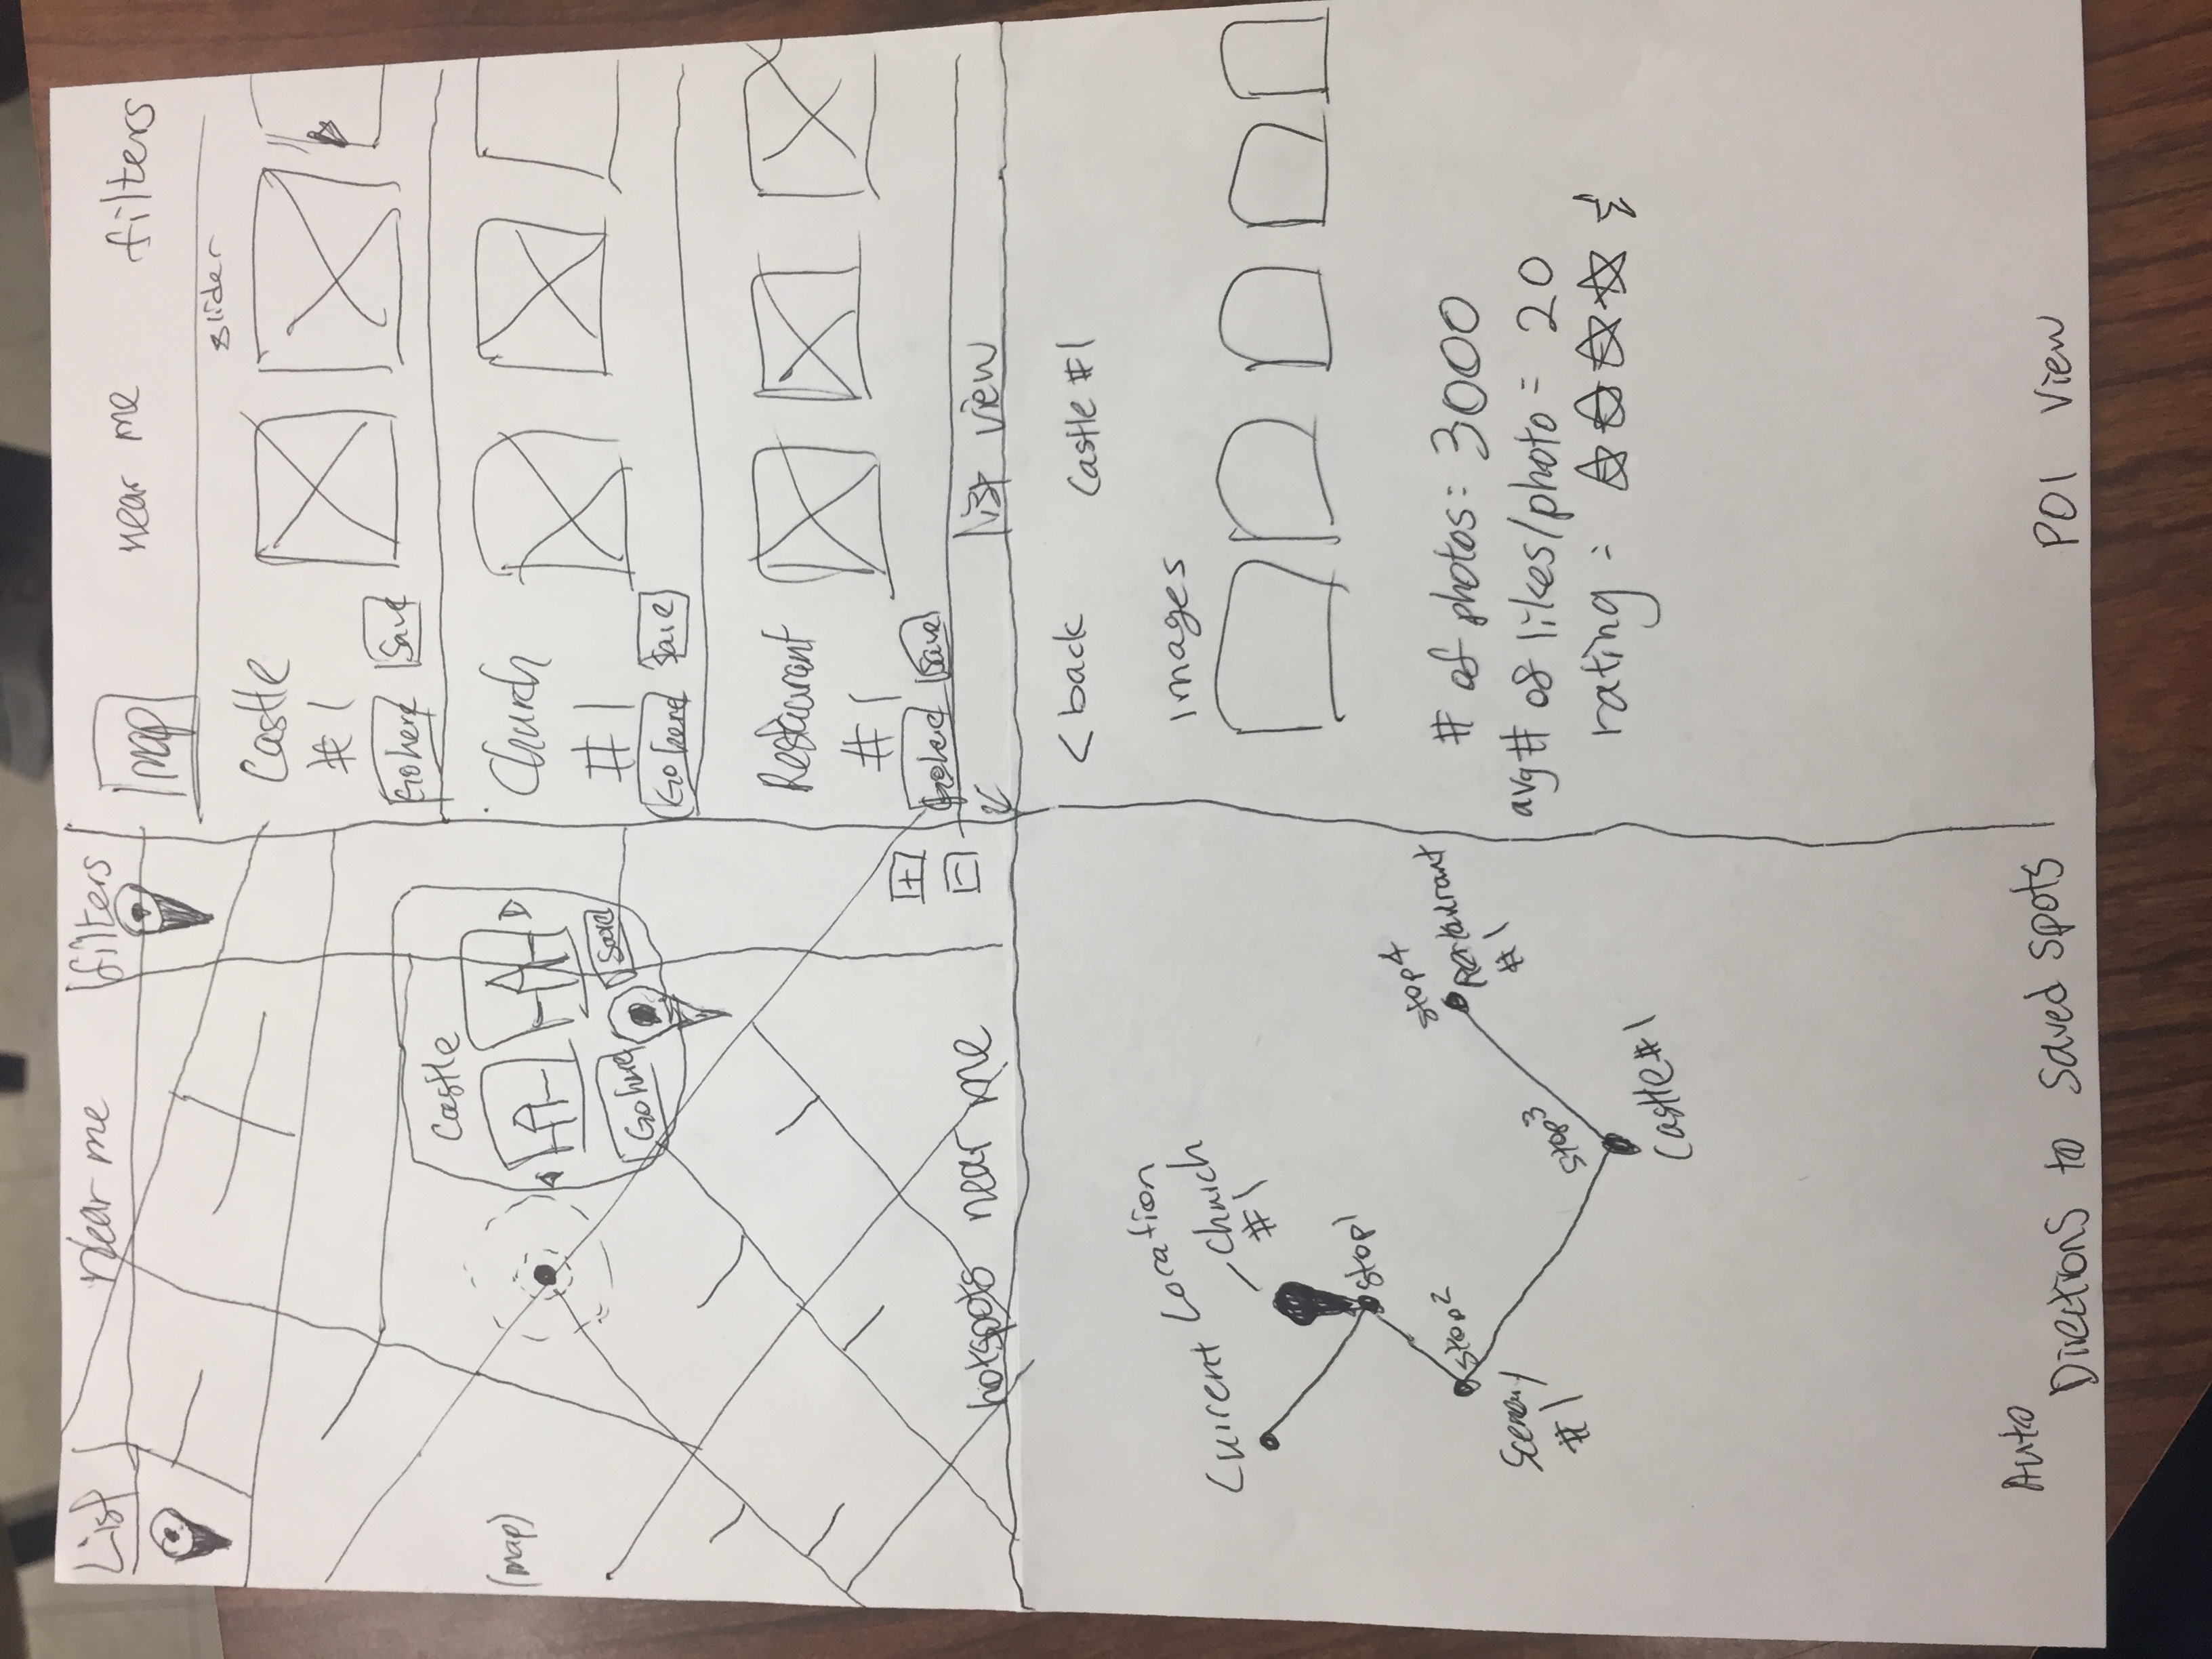 List near me filters
(map)
Castle
Go here Save
+
-
hotspots near me
map near me filters
slider
Castle
#1
Go here Save
Church
#1
Go here Save
Restaurant
#1
Go here Save
list view
Current Location
Church
#1
stop1
stop2
Scenery
#1
stop3
Castle #1
stop4
Restaurant
#1
Auto
Directions to saved spots
< back Castle #1
Images
# of photos: 3000
avg # of likes/photo = 20
rating =
POI View